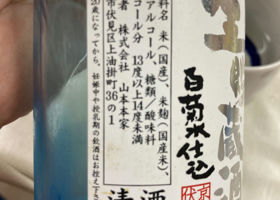 生貯蔵酒
白菊水仕込
料名 米(国産)、米麹(国産米)、
アルコール、糖類/酸味料
コール分 13度以上14度未満
者 株式会社 山本本家
市伏見区上油掛町36の1
20歳になってから。妊娠中や授乳期の飲酒はお控え下さ
清酒
京
伏